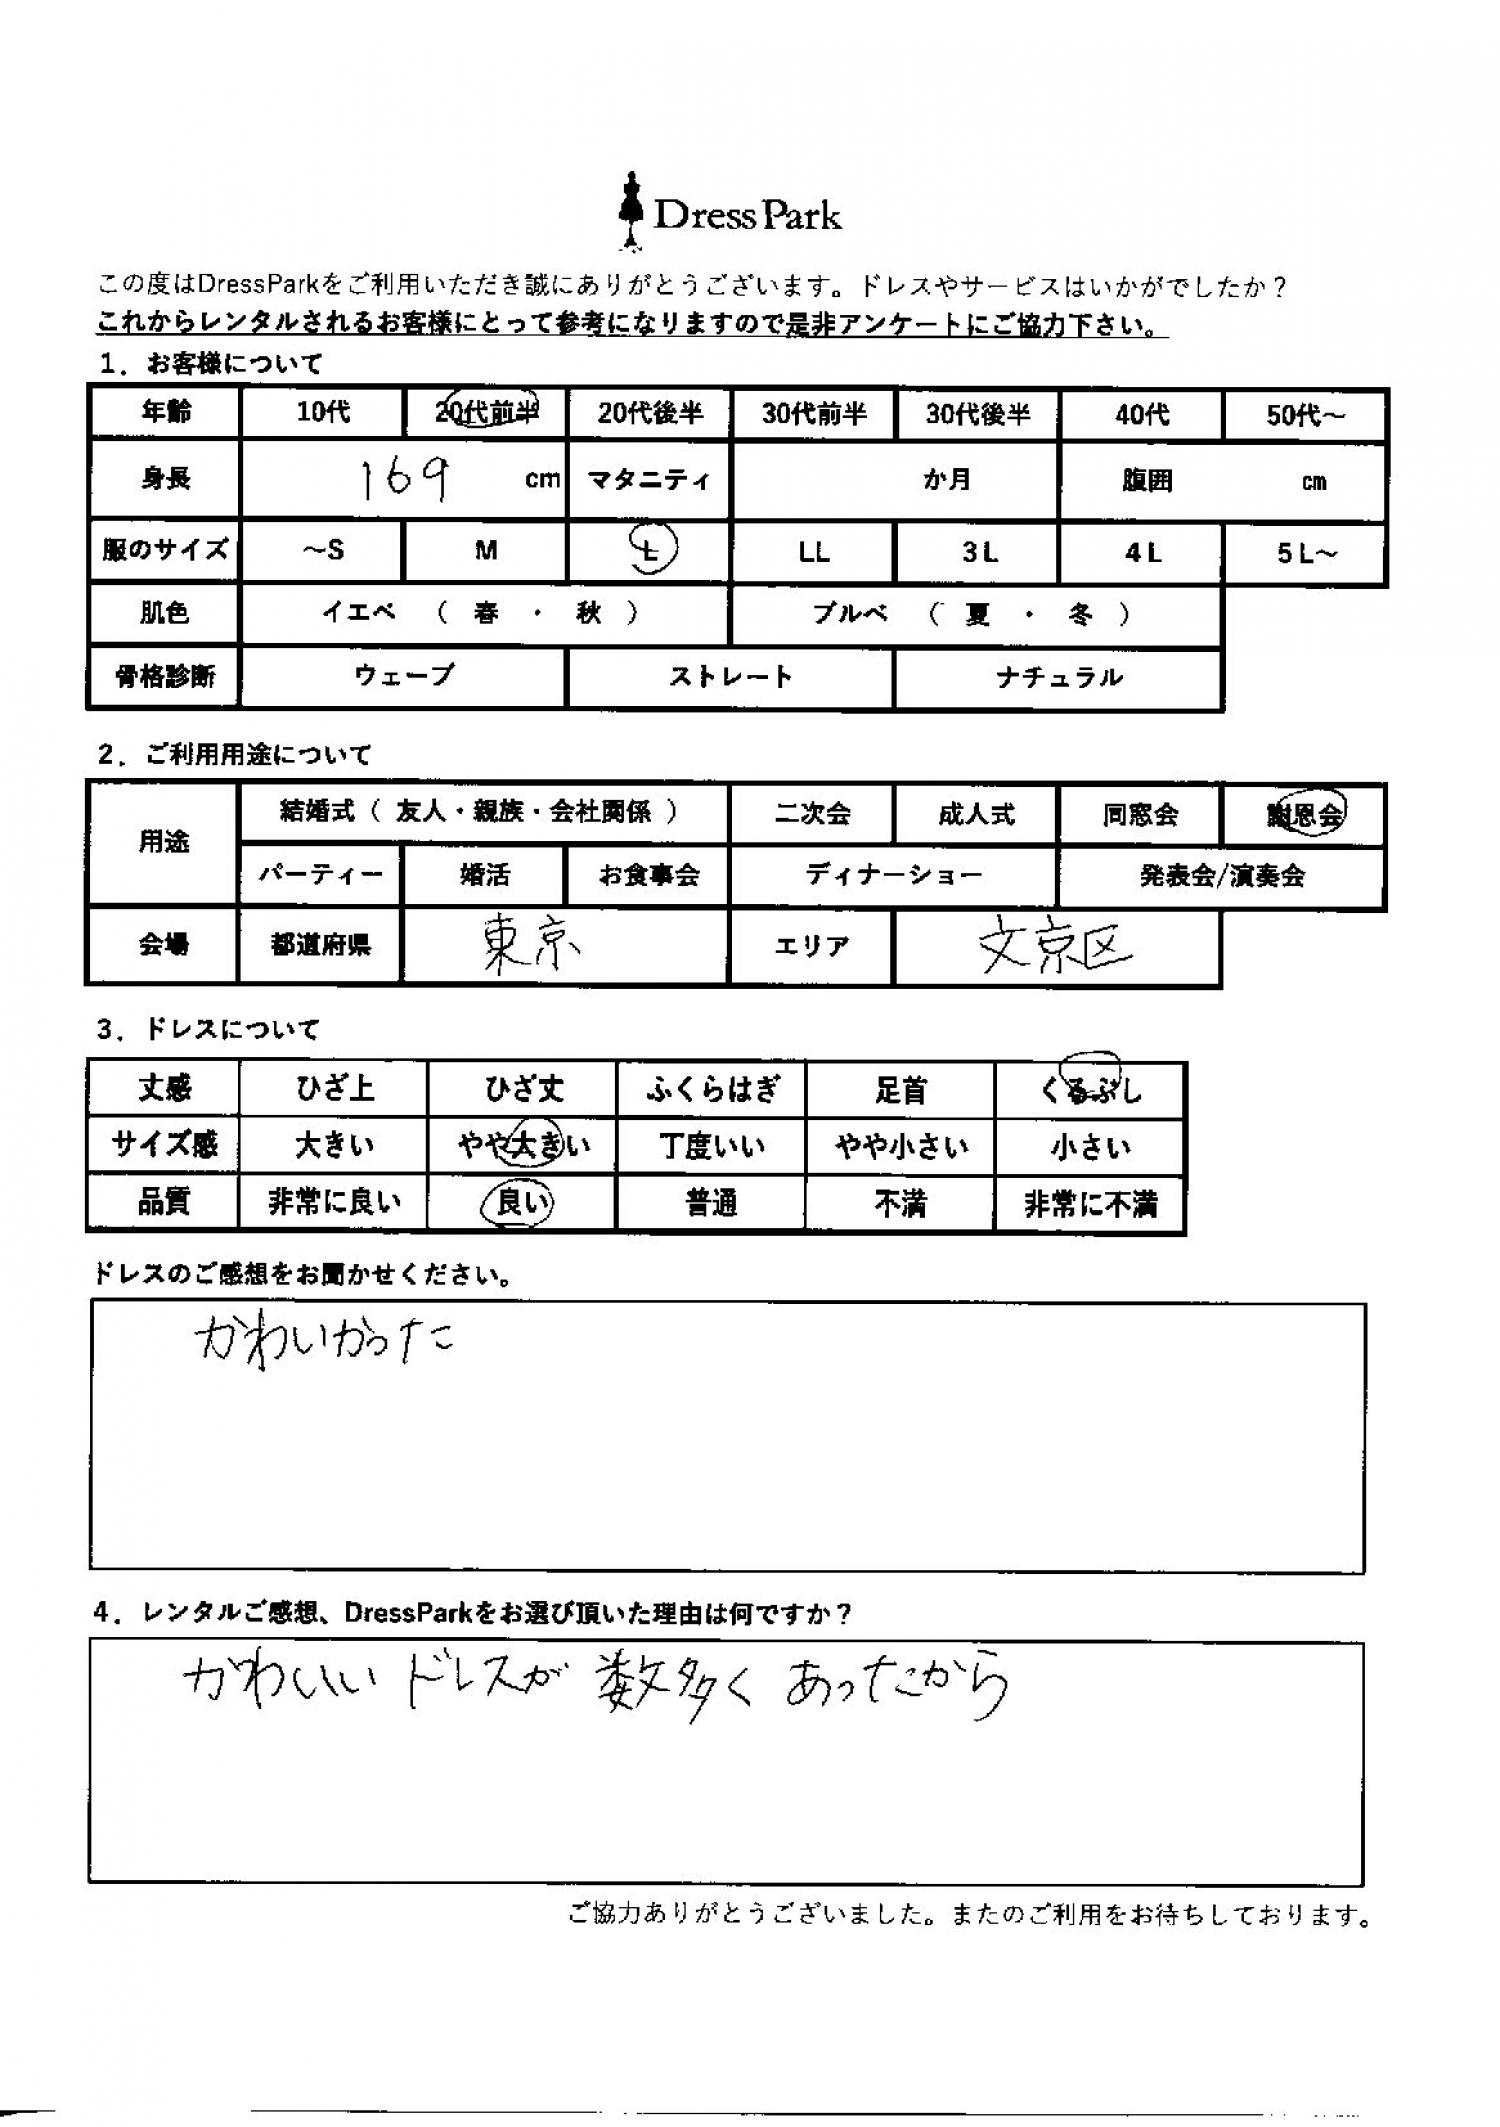 DressPark
この度はDressParkをご利用いただき誠にありがとうございます。ドレスやサービスはいかがでしたか？
これからレンタルされるお客様にとって参考になりますので是非アンケートにご協力下さい。
1．お客様について
年齢 10代 20代前半 20代後半 30代前半 30代後半 40代 50代～
身長 169 cm マタニティ か月 腹囲 cm
服のサイズ ～S M L LL 3L 4L 5L～
肌色 イエベ （ 春 ・ 秋 ） ブルベ （ 夏 ・ 冬 ）
骨格診断 ウェーブ ストレート ナチュラル
2．ご利用用途について
用途 結婚式（ 友人・親族・会社関係 ） 二次会 成人式 同窓会 謝恩会
パーティー 婚活 お食事会 ディナーショー 発表会/演奏会
会場 都道府県 東京 エリア 文京区
3．ドレスについて
丈感 ひざ上 ひざ丈 ふくらはぎ 足首 くるぶし
サイズ感 大きい やや大きい 丁度いい やや小さい 小さい
品質 非常に良い 良い 普通 不満 非常に不満
ドレスのご感想をお聞かせください。
かわいかった
4．レンタルご感想、DressParkをお選び頂いた理由は何ですか？
かわいい ドレスが 数多く あったから
ご協力ありがとうございました。またのご利用をお待ちしております。